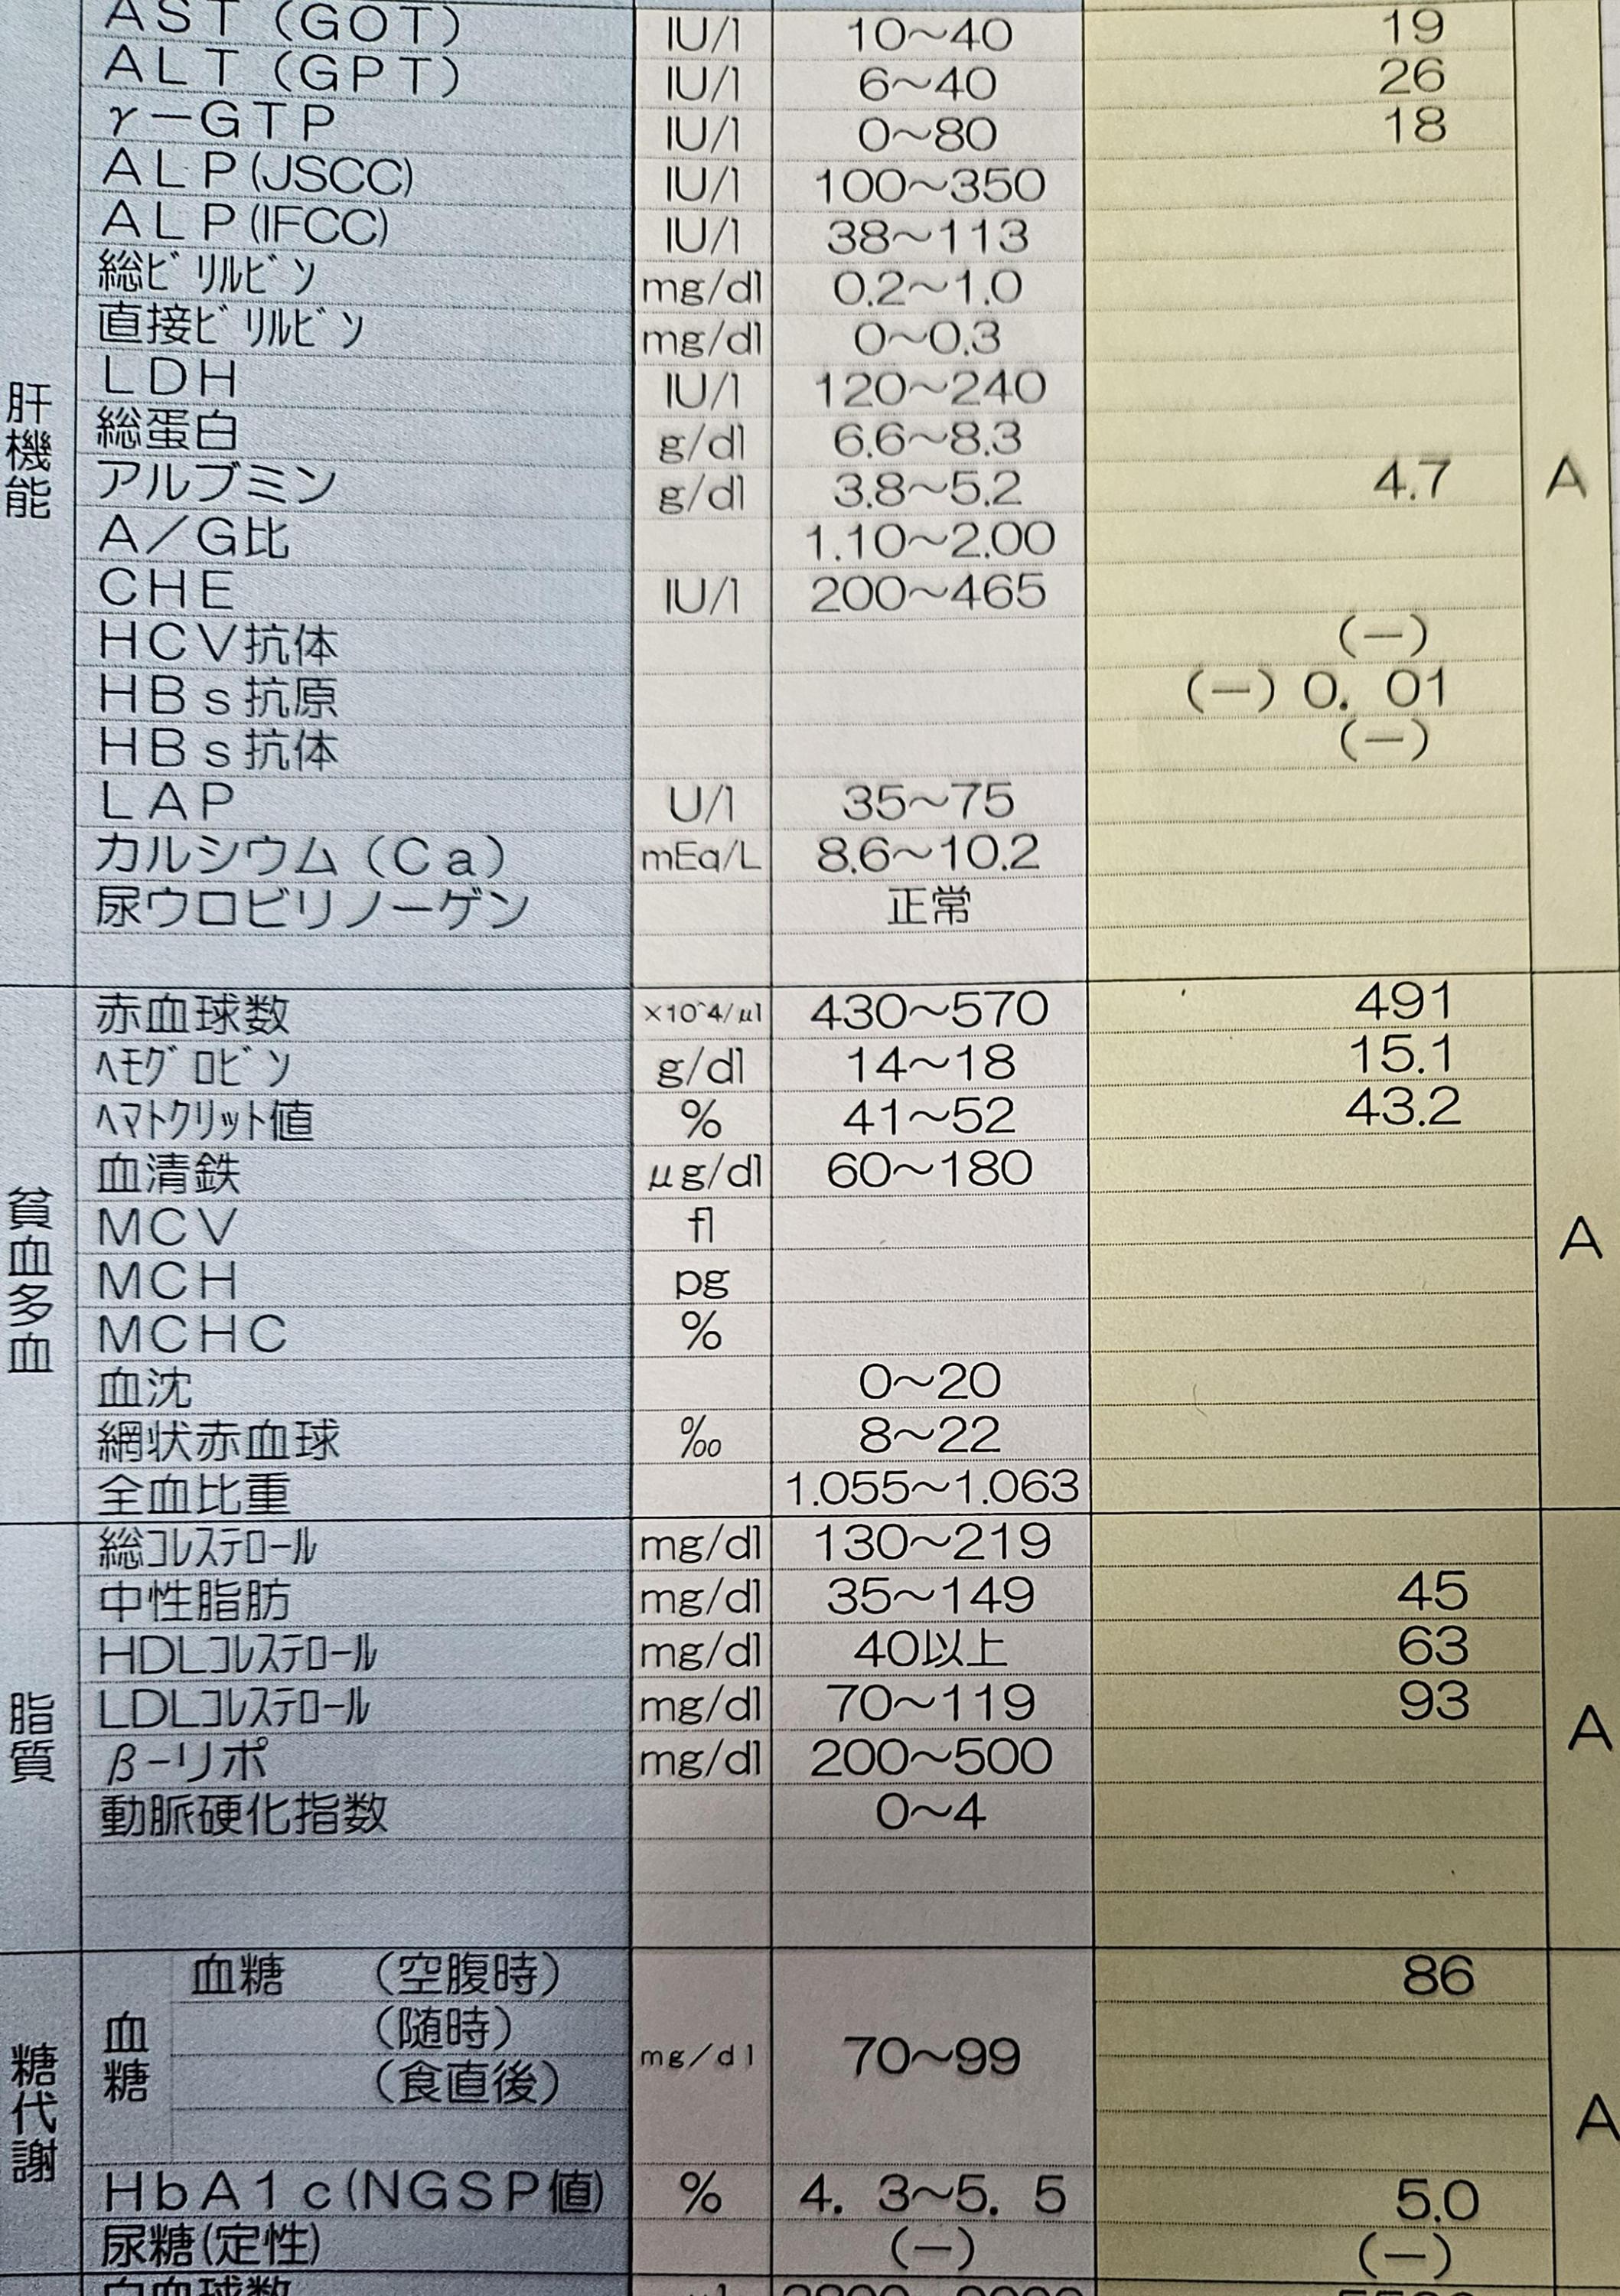 AST（GOT） IU/l 10～40 19
ALT（GPT） IU/l 6～40 26
γ－GTP IU/l 0～80 18
ALP(JSCC) IU/l 100～350
ALP(IFCC) IU/l 38～113
総ﾋﾞﾘﾙﾋﾞﾝ mg/dl 0.2～1.0
直接ﾋﾞﾘﾙﾋﾞﾝ mg/dl 0～0.3
LDH IU/l 120～240
総蛋白 g/dl 6.6～8.3
肝機能 アルブミン g/dl 3.8～5.2 4.7 A
A／G比 1.10～2.00
CHE IU/l 200～465
HCV抗体 (－)
HBs抗原 (－) 0. 01
HBs抗体 (－)
LAP U/l 35～75
カルシウム（Ca） mEq/L 8.6～10.2
尿ウロビリノーゲン 正常
赤血球数 ×10^4/μl 430～570 491
ﾍﾓｸﾞﾛﾋﾞﾝ g/dl 14～18 15.1
ﾍﾏﾄｸﾘｯﾄ値 % 41～52 43.2
血清鉄 μg/dl 60～180
貧血多血 MCV fl A
MCH pg
MCHC %
血沈 0～20
網状赤血球 ‰ 8～22
全血比重 1.055～1.063
総ｺﾚｽﾃﾛｰﾙ mg/dl 130～219
中性脂肪 mg/dl 35～149 45
HDLｺﾚｽﾃﾛｰﾙ mg/dl 40以上 63
脂質 LDLｺﾚｽﾃﾛｰﾙ mg/dl 70～119 93 A
β－リポ mg/dl 200～500
動脈硬化指数 0～4
血糖 （空腹時） 86
（随時）
糖代謝 血糖 （食直後） mg/dl 70～99 A
HbA1c(NGSP値) % 4. 3～5. 5 5.0
尿糖(定性) (－) (－)
白血球数